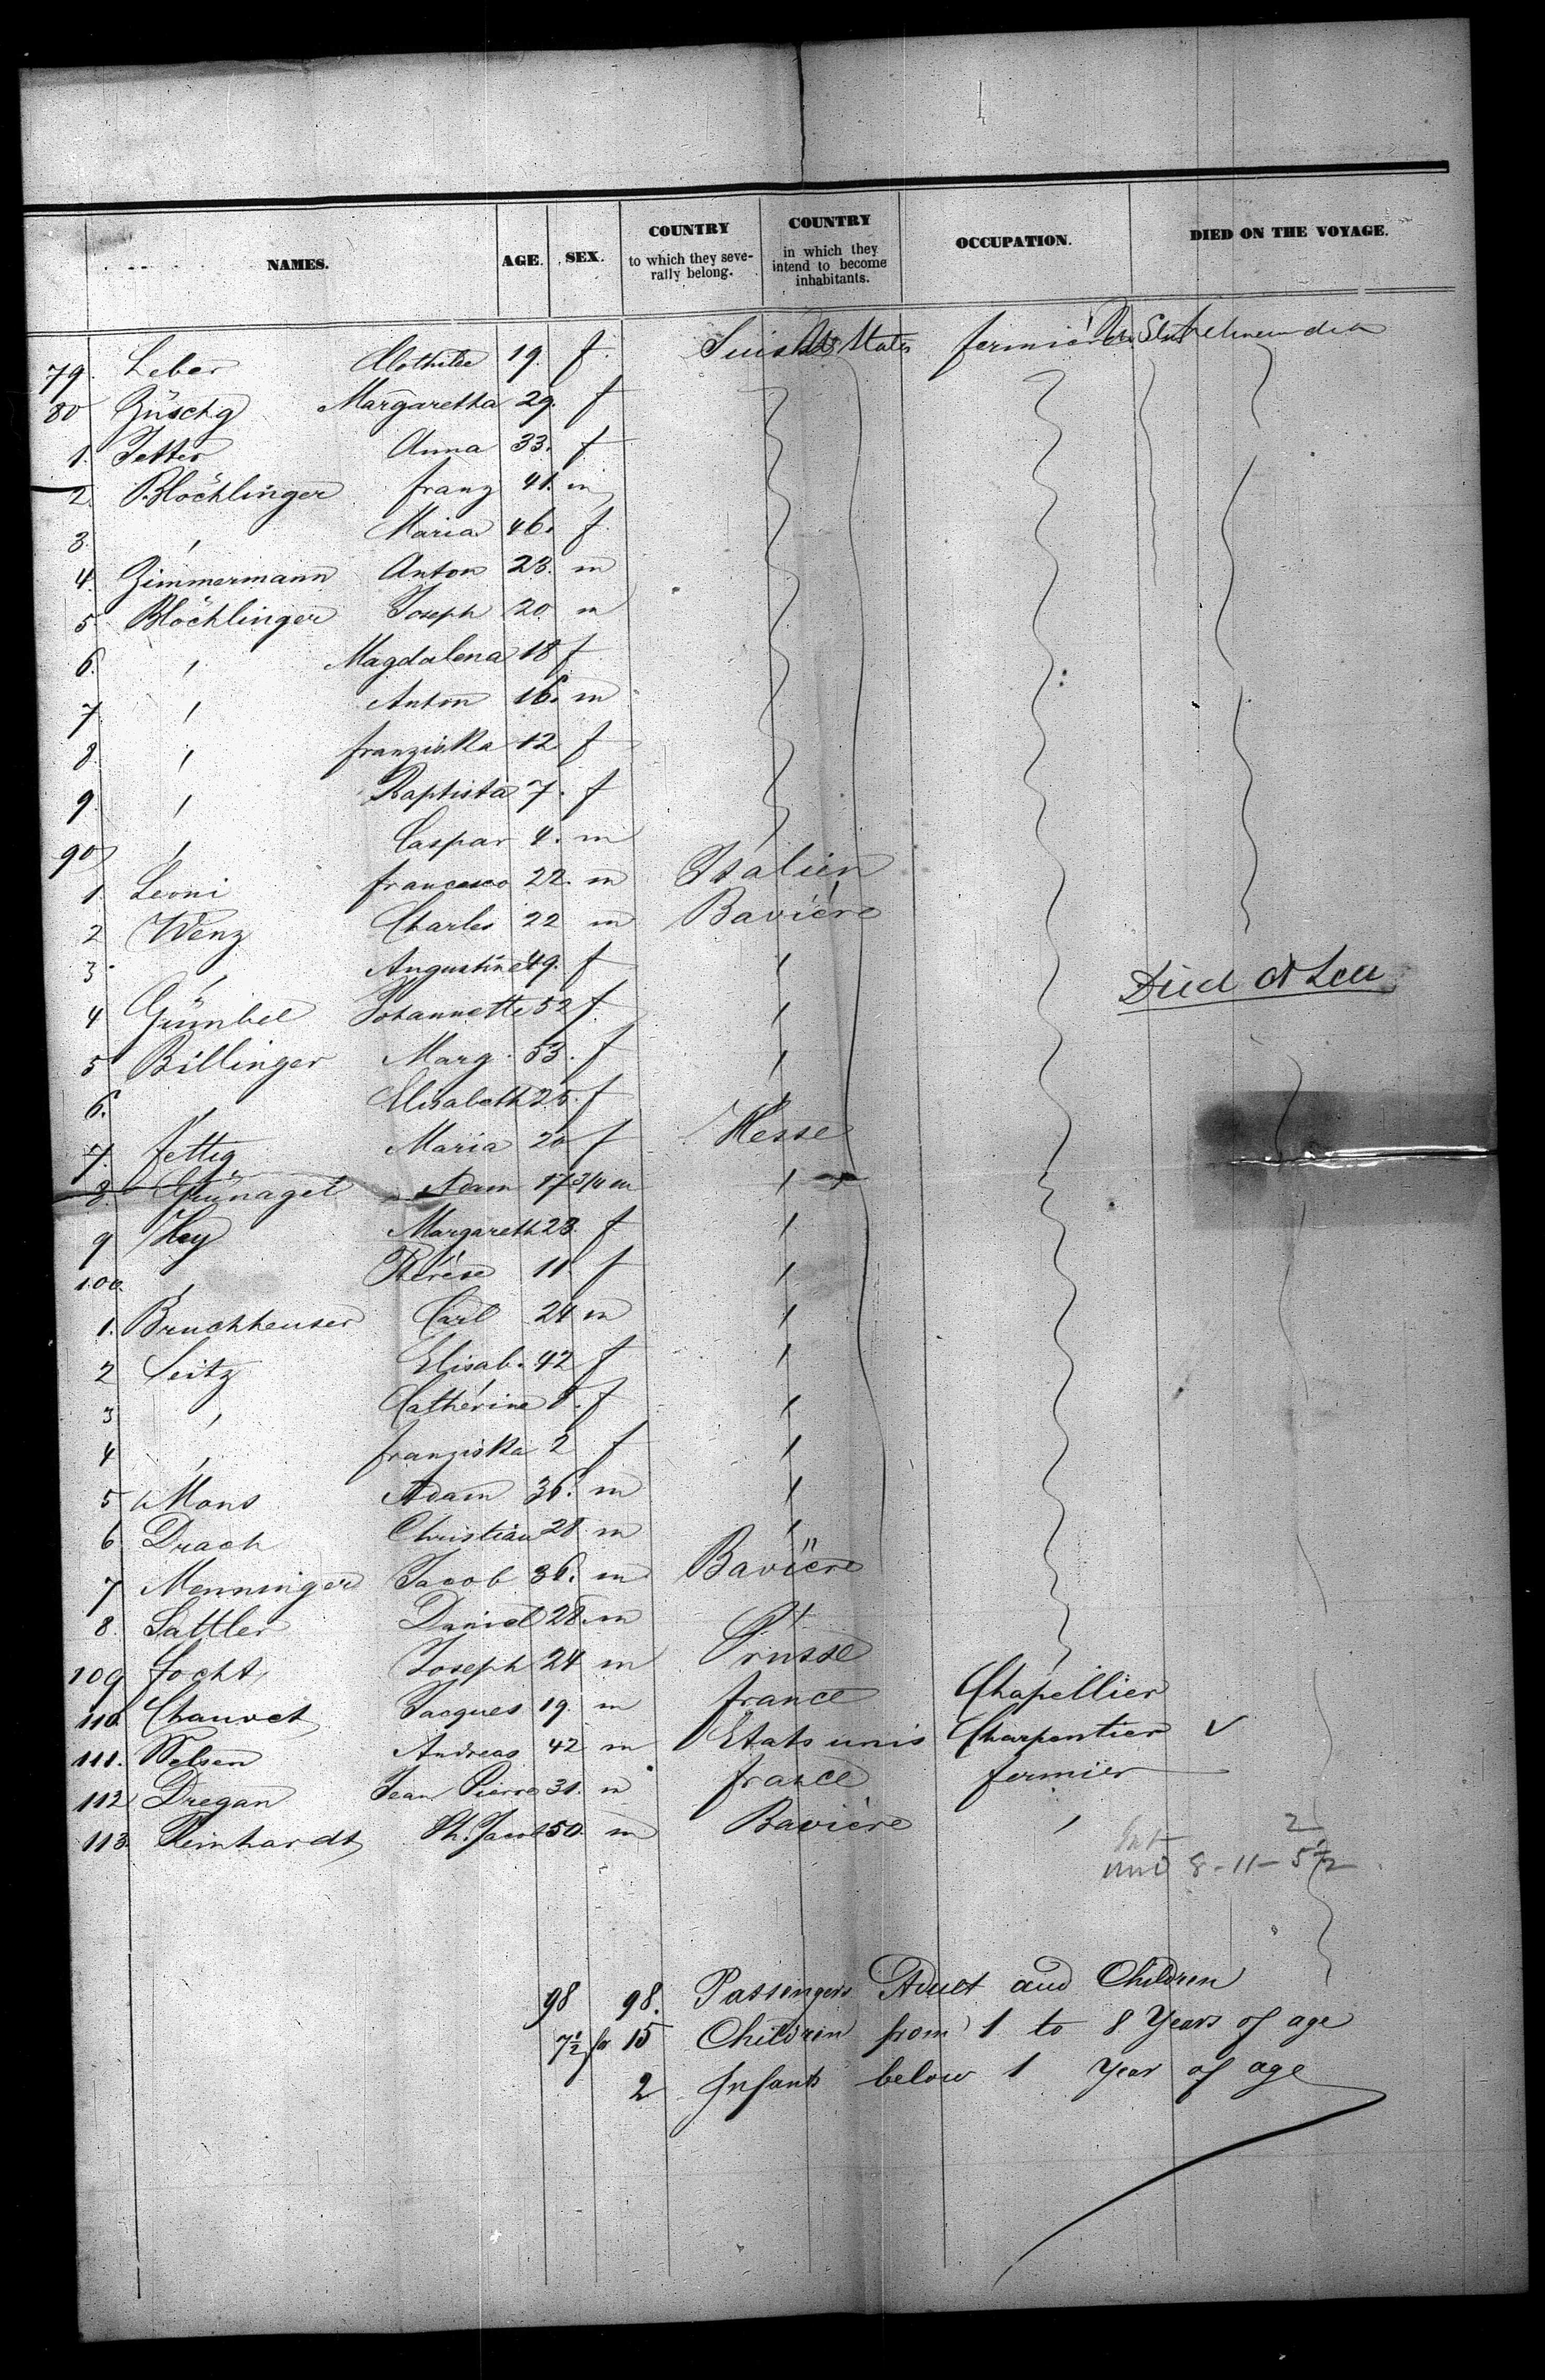 NAMES. AGE. SEX. COUNTRY to which they severally belong. COUNTRY in which they intend to become inhabitants. OCCUPATION. DIED ON THE VOYAGE.
79. Leber Clothilde 19. f. Suisse U States fermier
80 Züschg Margaretha 29. f
1. Jetter Anna 33. f
2. Blöchlinger franz 41. m
3. , Maria 46. f.
4. Zimmermann Anton 23. m
5. Blöchlinger Joseph 20 m
6. , Magdalena 18 f
7. , Anton 16. m
8. , franziska 12. f
9. , Baptista 7. f
90 , Caspar 4. m
1. Leoni francesco 22. m Italien
2 Wenz Charles 22 m Bavière
3. , Augustine 49. f ,
4 Gümbel Johannette 52 f. , Died at Sea
5 Billinger Marg. 53. f ,
6. , Elisabeth 25. f ,
7. fettig Maria 20 f Hesse
8. Grünaget Adam 17 3/4 m ,
9 Hay Margareth 23. f ,
100. , Thérèse 11 f ,
1. Bruchheuser Carl 24 m ,
2 Seitz Elisab. 42 f ,
3 , Cathérine 8. f ,
4 , franziska 2 f ,
5 Mons Adam 36. m ,
6 Drach Christian 28. m ,
7 Menninger Jacob 36. m Bavière
8. Sattler Daniel 28. m "
109 focht Joseph 24 m Prusse
110 Chauvet Jacques 19. m france Chapellier
111. Welsen Andreas 42 m Etats unis Charpentier ✓
112 Dregan Jean Pierre 31. m france fermier
113. Reinhardt Ph. Jacob 50. m Bavière ,
2
8-11-5 1/2
98 98. Passengers Adult and Children
7 1/2 for 15 Children from 1 to 8 Years of age
2 Infants below 1 Year of age